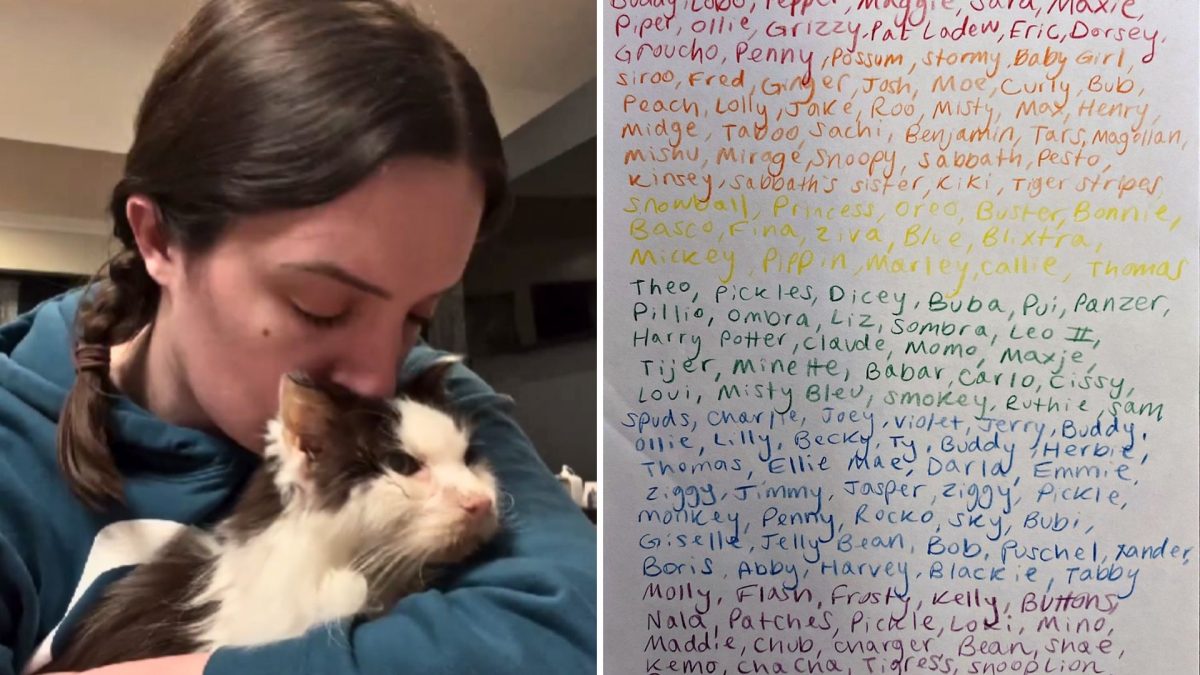 Buddy, Lobo, Pepper, Maggie, Sara, Maxie,
Piper, Ollie, Grizzy, Pat Ladew, Eric, Dorsey,
Groucho, Penny, Possum, Stormy, Baby Girl,
Siroo, Fred, Ginger, Josh, Moe, Curly, Bub,
Peach, Lolly, Jake, Roo, Misty, Max, Henry,
Midge, Taboo, Sachi, Benjamin, Tars, Magellan,
Mishu, Mirage, Snoopy, Sabbath, Pesto,
Kinsey, Sabbath's sister, Kiki, Tiger Stripes,
Snowball, Princess, Oreo, Buster, Bonnie,
Basco, Fina, Ziva, Blue, Blixtra,
Mickey, Pippin, Marley, Callie, Thomas
Theo, Pickles, Dicey, Buba, Pui, Panzer,
Pillio, Ombra, Liz, Sombra, Leo II,
Harry Potter, Claude, Momo, Maxje,
Tijer, Minette, Babar, Carlo, Cissy,
Loui, Misty Bleu, Smokey, Ruthie, Sam
Spuds, Charlie, Joey, Violet, Jerry, Buddy,
Ollie, Lilly, Becky, Ty, Buddy, Herbie,
Thomas, Ellie Mae, Darla, Emmie,
Ziggy, Jimmy, Jasper, Ziggy, Pickle,
Monkey, Penny, Rocko, Sky, Bubi,
Giselle, Jelly Bean, Bob, Puschel, Xander,
Boris, Abby, Harvey, Blackie, Tabby
Molly, Flash, Frosty, Kelly, Buttons,
Nala, Patches, Pickle, Loki, Mino,
Maddie, Chub, Charger, Bean, Shae,
Kemo, Chacha, Tigress, Snoop Lion